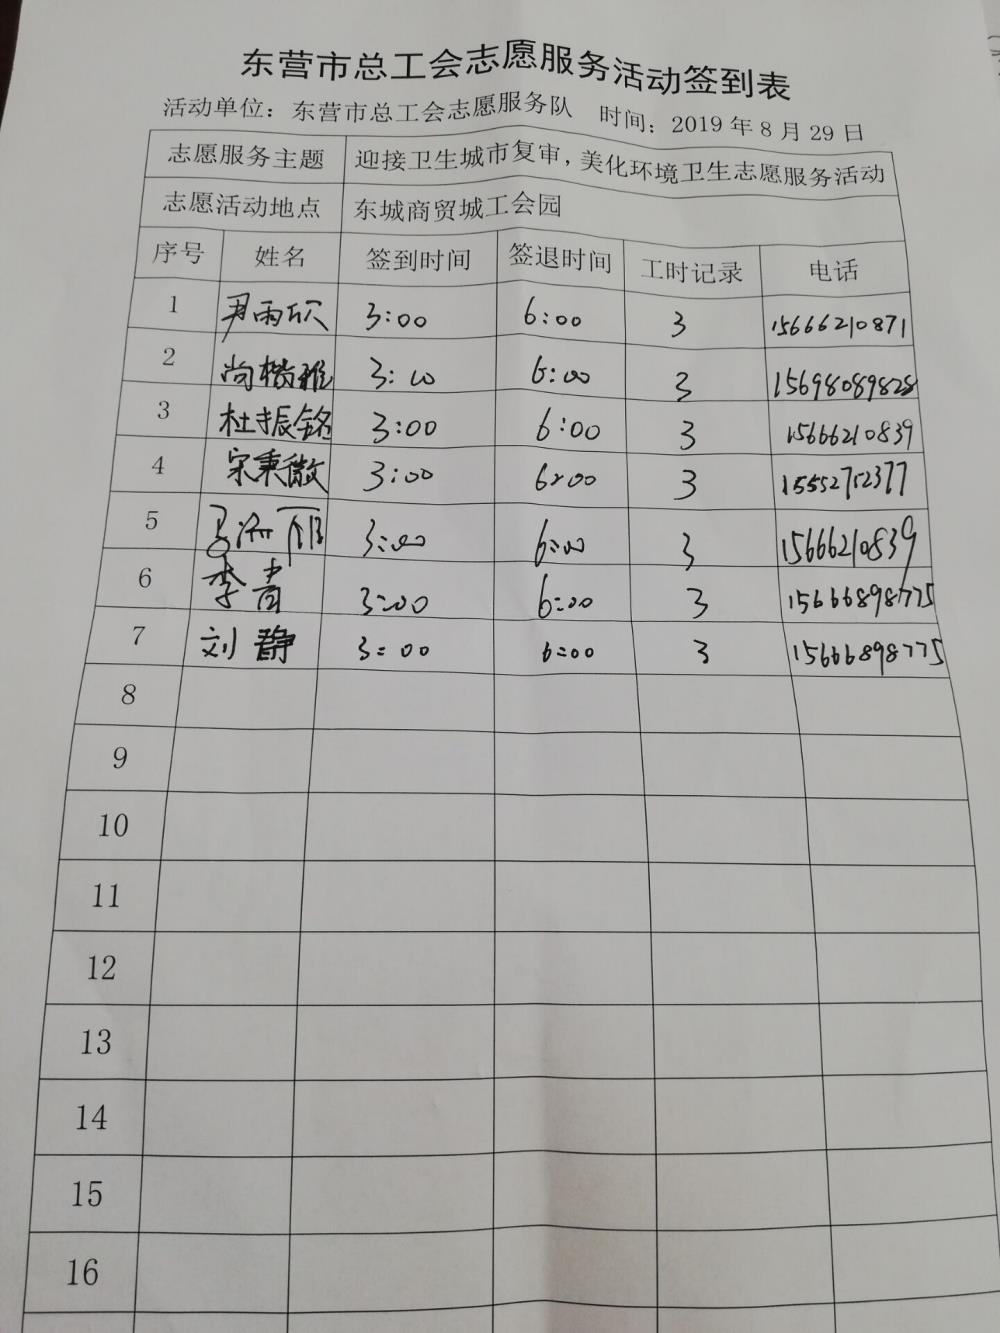 东营市总工会志愿服务活动签到表
活动单位：东营市总工会志愿服务队 时间：2019年8月29日
志愿服务主题 迎接卫生城市复审，美化环境卫生志愿服务活动
志愿活动地点 东城商贸城工会园
序号 姓名 签到时间 签退时间 工时记录 电话
1 尹雨欣 3:00 6:00 3 15666210871
2 尚楷雅 3:00 6:00 3 15698089828
3 杜振铭 3:00 6:00 3 15666210839
4 宋秉微 3:00 6:00 3 15552752377
5 3:00 6:00 3 15666210839
6 李青 3:00 6:00 3 15666898775
7 刘静 3:00 6:00 3 15666898775
8
9
10
11
12
13
14
15
16